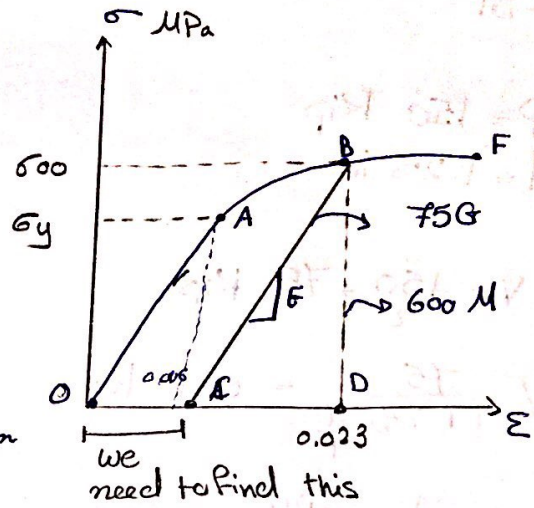 σ MPa
600
B
F
σy
A
75G
E
600 M
O
C
D
0.023
ε
we
need to find this